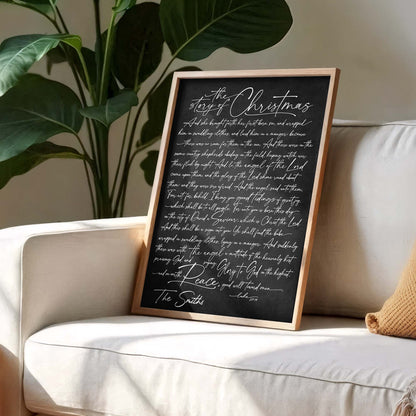 the
story of Christmas
And she brought forth her first born son, and wrapped
him in swaddling clothes, and laid him in a manger because
there was no room for them in the inn. And there were in the
same country shepherds abiding in the field, keeping watch over
their flock by night. And, lo, the angel of the Lord
came upon them, and the glory of the Lord shone round about
them: and they were sore afraid. And the angel said unto them,
Fear not: for behold, I bring you good tidings of great joy
which shall be to all people. For unto you is born this day
in the city of David a Saviour, which is Christ the Lord
And this shall be a sign unto you: Ye shall find the babe
wrapped in swaddling clothes, lying in a manger. And suddenly
there was with the angel a multitude of the heavenly host
praising God and saying Glory to God in the highest
and on earth Peace, good will toward men.
The Smiths
Luke